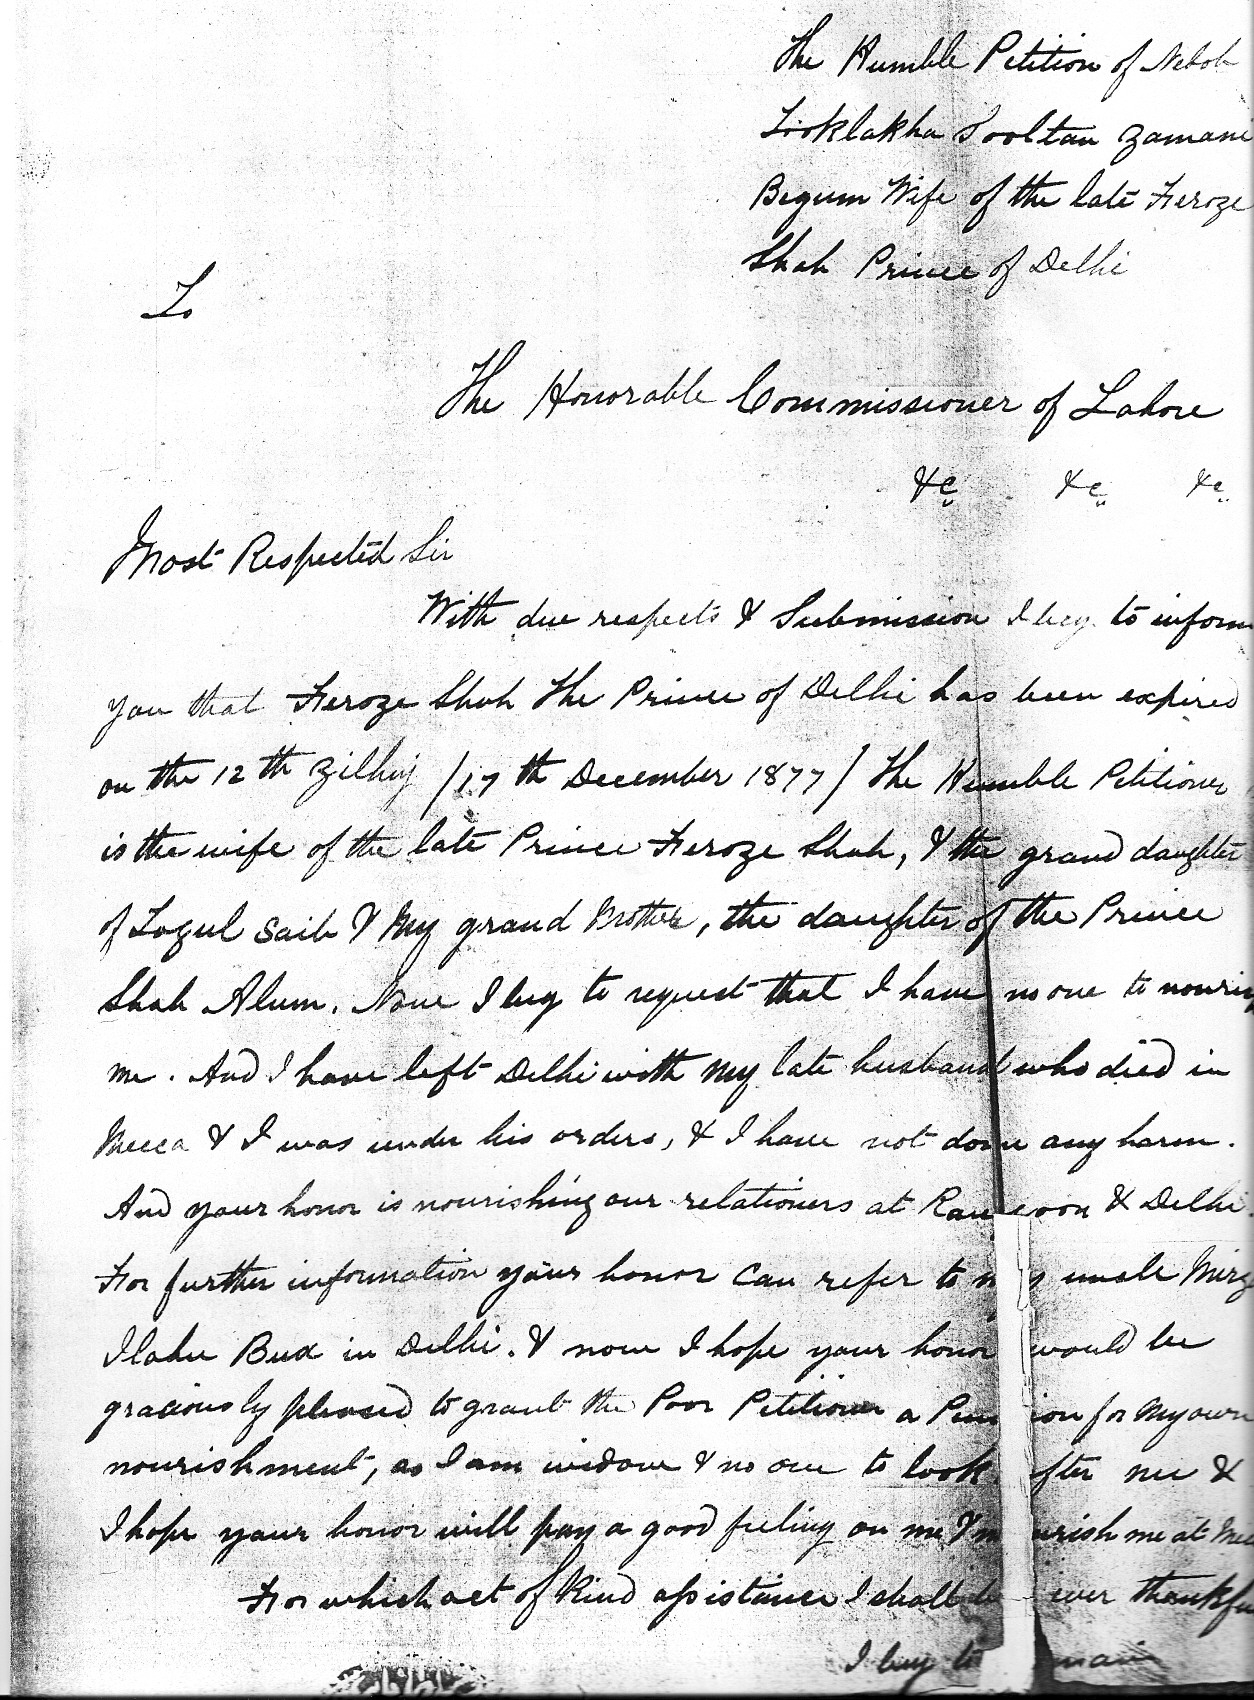 The Humble Petition of Nebob
Tooklakha Sooltan Zamani
Begum Wife of the late Feroze
Shah Prince of Delhi
To
The Honorable Commissioner of Lahore
&c &c &c
Most Respected Sir
With due respects & Submission I beg to inform
you that Feroze Shah The Prince of Delhi has been expired
on the 12th Zilhij /17th December 1877/ The Humble Petitioner
is the wife of the late Prince Feroze Shah, & the grand daughter
of Togul Saib & My grand Mother, the daughter of the Prince
Shah Alum. Now I beg to request that I have no one to nourish
me. And I have left Delhi with my late husband who died in
Mecca & I was under his orders, & I have not done any harm.
And your honor is nourishing our relationers at Rangoon & Delhi.
For further information your honor can refer to my uncle Mirza
Ilahee Bux in Delhi. & now I hope your honor would be
graciously pleased to grant the Poor Petitioner a Pension for My own
nourishment, as I am widow & no one to look after me &
I hope your honor will pay a good feeling on me & nourish me at
For which act of Kind assistance I shall be ever thankful
I beg to remain